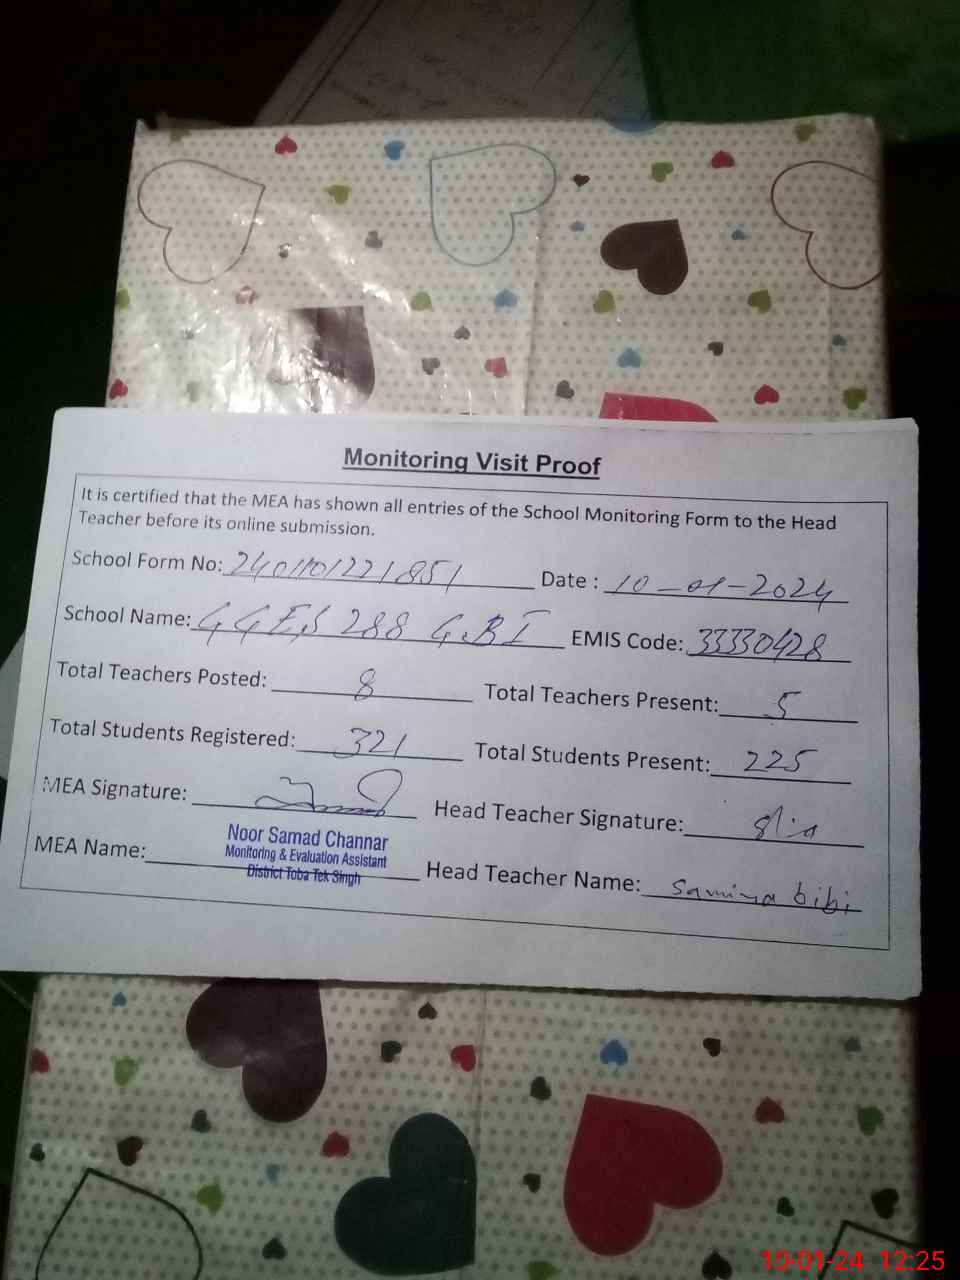 Monitoring Visit Proof
It is certified that the MEA has shown all entries of the School Monitoring Form to the Head
Teacher before its online submission.
School Form No: 2401101221851 Date : 10-01-2024
School Name: GGES 288 G.B I EMIS Code: 33330428
Total Teachers Posted: 8 Total Teachers Present: 5
Total Students Registered: 321 Total Students Present: 225
MEA Signature: Head Teacher Signature:
Noor Samad Channar
Monitoring & Evaluation Assistant
District Toba Tek Singh
MEA Name: Head Teacher Name: Samina bibi
10-01-24 12:25